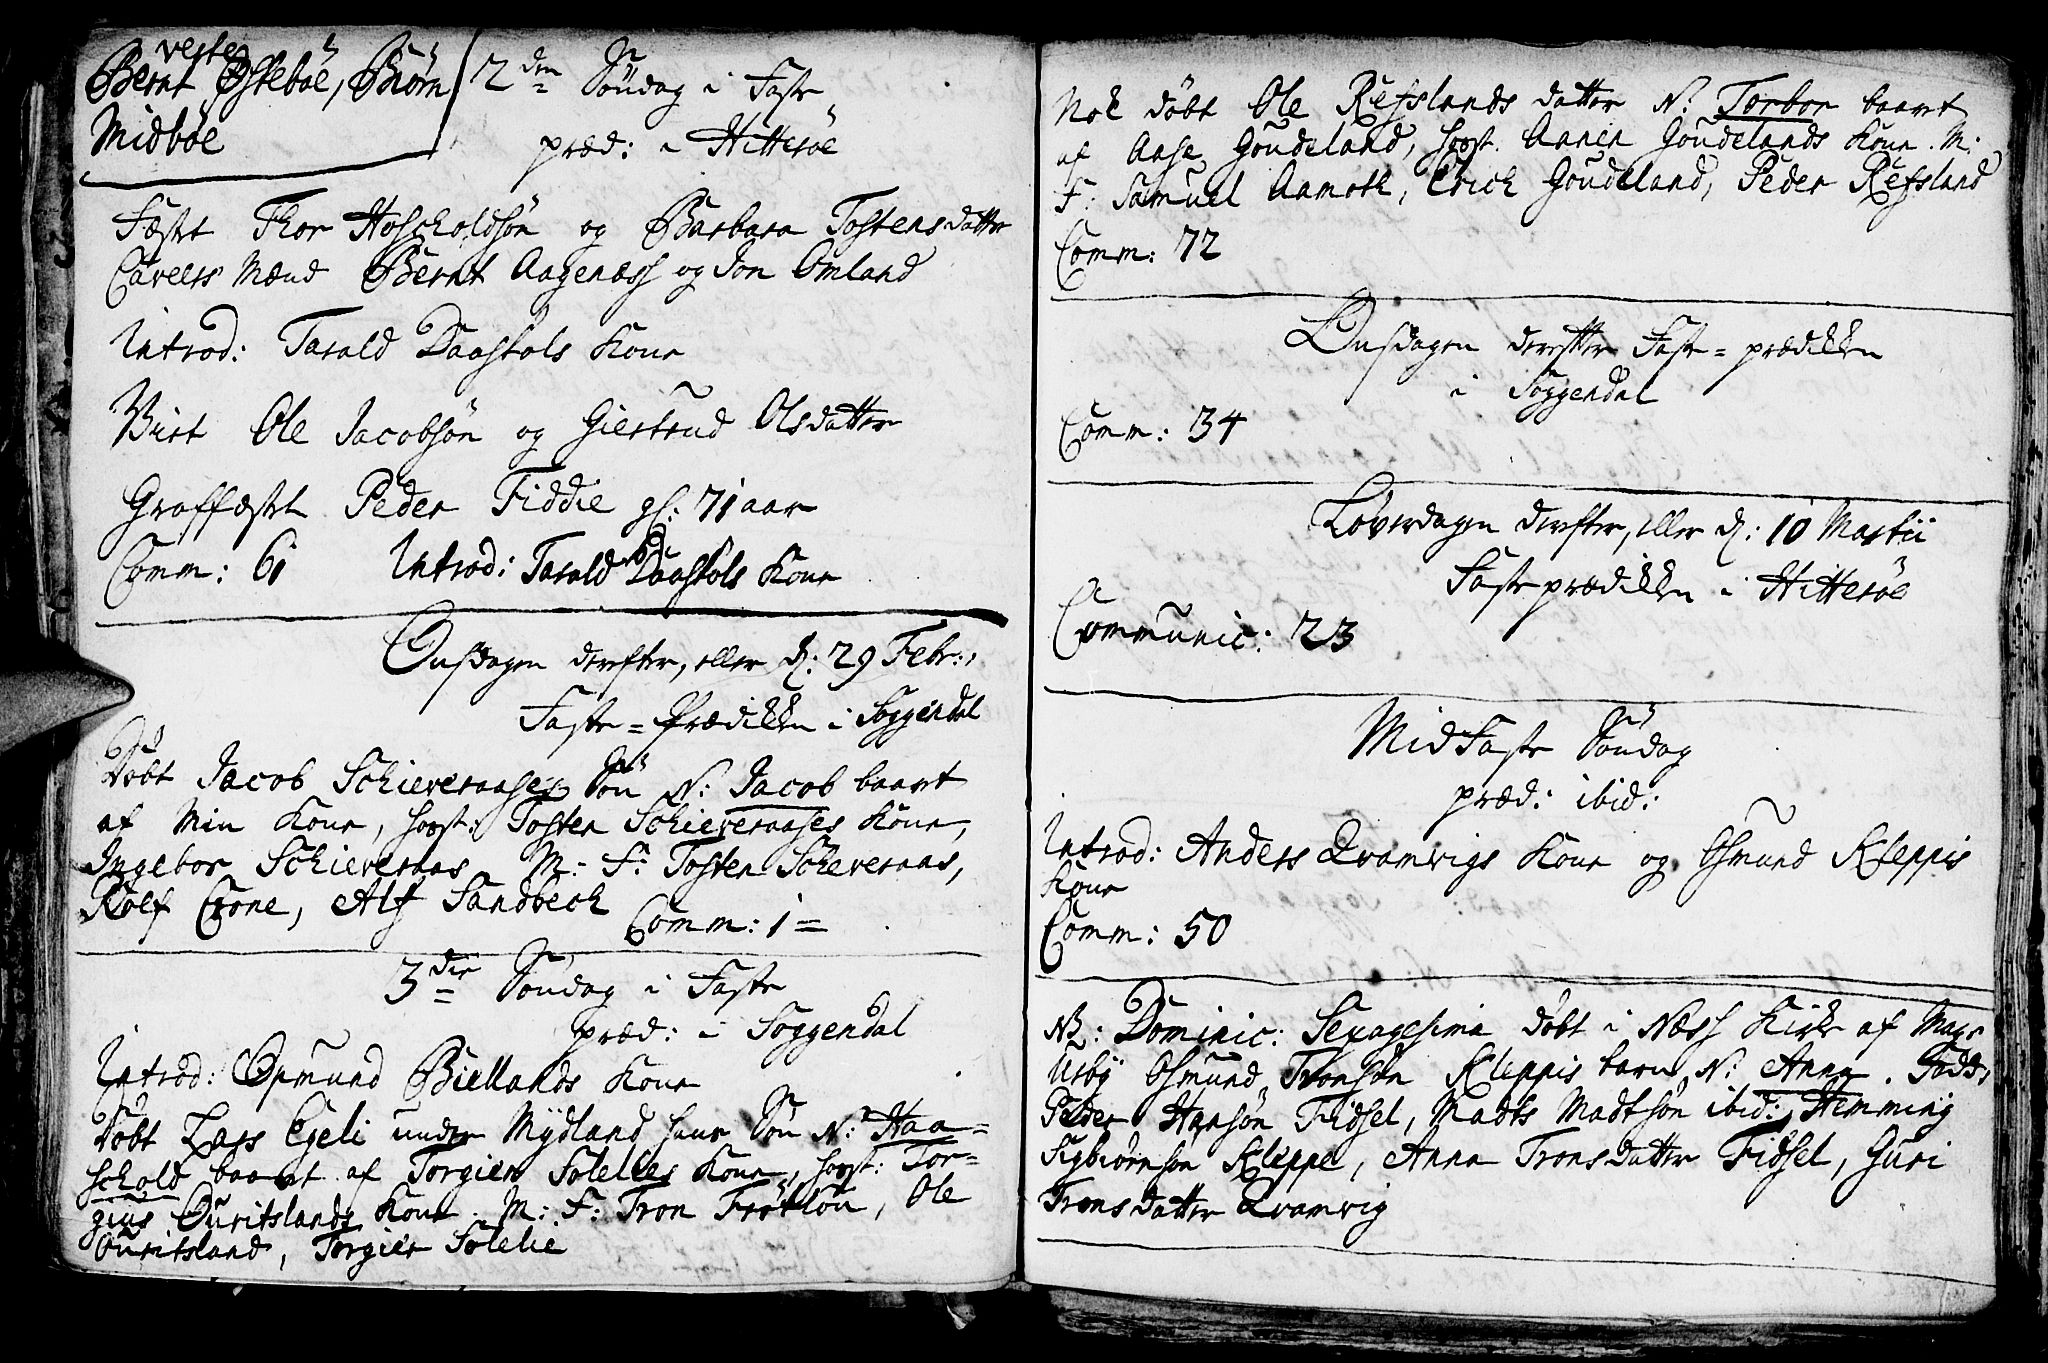 veste
Bernt Østebøe, Biørn
Midbøe
2den Søndag i Faste
præd: i Hitterøe
Fæstet Thor Hoscholdsøn og Barbara Tostensdatter
Caveers Mænd Bernt Aagenæss og Jon Omland
Introd: Tarald Daastols Kone
Viet Ole Jacobsøn og Giertrud Olsdatter
Graffæstet Peder Fiddie gl: 71 aar
Comm: 61 Introd: Tarald Daastols Kone
Onsdagen derefter, eller d: 29 Febr:,
Faste=Prædikken i Soggendal
Døbt Jacob Schieveraases Søn N: Jacob baaret
af Min Kone, host: Tosten Schieveraases Kone,
Ingebor Schieveraas M: F: Tosten Scheveraas,
Rolf Crone, Alf Sandbeck
Comm: 1=
3die Søndag i Faste
præd: i Soggendal
Introd: Osmund Biellands Kone
Døbt Lars Egeli under Mydland hans Søn N: Haa=
schold baaret af Torgier Solelies Kone, host: Tor=
gius Ouritslands Kone. M: F: Tron Frøtlou, Ole
Ouritsland, Torgier Solelie
Nok døbt Ole Refslands datter N: Torbor baaret
af Aase Goudeland, host. Annen Goudelands Kone. M:
F: Samuel Aamoth, Erich Goudeland, Peder Refsland
Comm: 72
Onsdagen derefter Faste=prædikken
i Soggendal
Comm: 34
Løverdagen derefter, eller d: 10 Martii
Faste prædikken i Hitterøe
Communic: 23
MidFaste Søndag
præd: ibid:
Introd: Anders Qvamvigs Kone og Osmund Kleppis
Kone
Comm: 50
NB: Dominic: Sexagesima døbt i Næss Kirke af Mags
Usby Osmund Tronsøn Kleppis barn N: Anna. Fadd:
Peder Hansøn Fidsel, Madts Madtsøn ibid:, Hemming
Sigbiørnsøn Kleppe, Anna Tronsdatter Fidsel, Guri
Tronsdatter Qvamvig